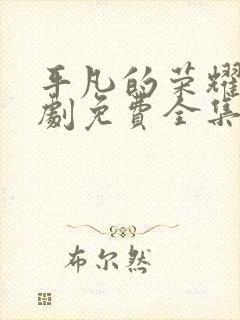 平凡的荣耀
劇免費全集
布尔然